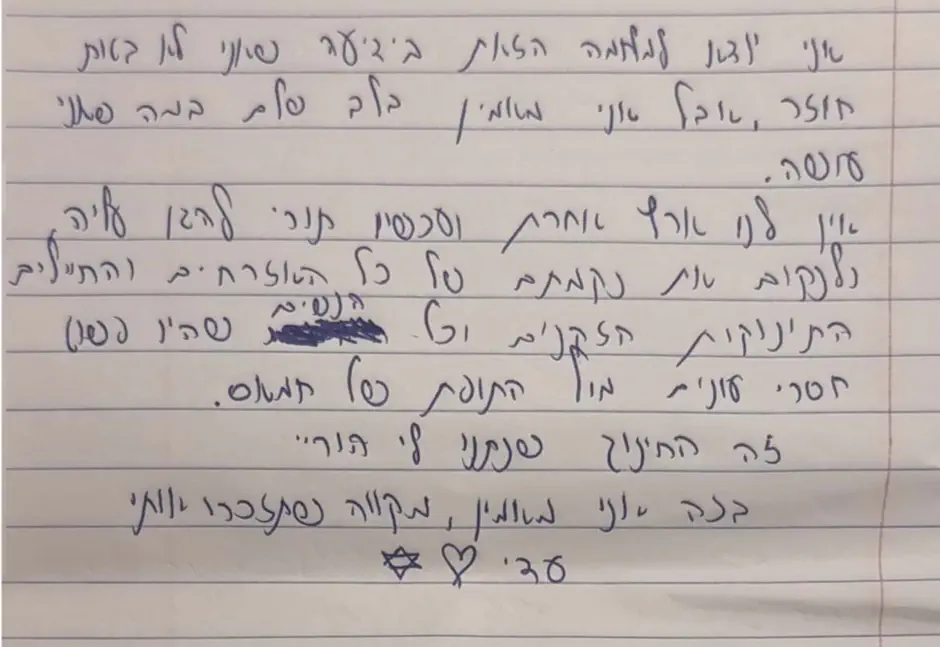 אני יוצא למלחמה הזאת בידיעה שאני לא בטוח
חוזר, אבל אני מאמין בלב שלם במה שאני
עושה.
אין לנו ארץ אחרת ועכשיו תורי להגן עליה
ולנקום את נקמתם של כל האזרחים והחיילים
התינוקות הזקנים וכל הנשים שהיו פשוט
חסרי עונים מול התופת של חמאס.
זה החינוך שנתנו לי הוריי
בזה אני מאמין, מקווה שתזכרו אותי
עדי